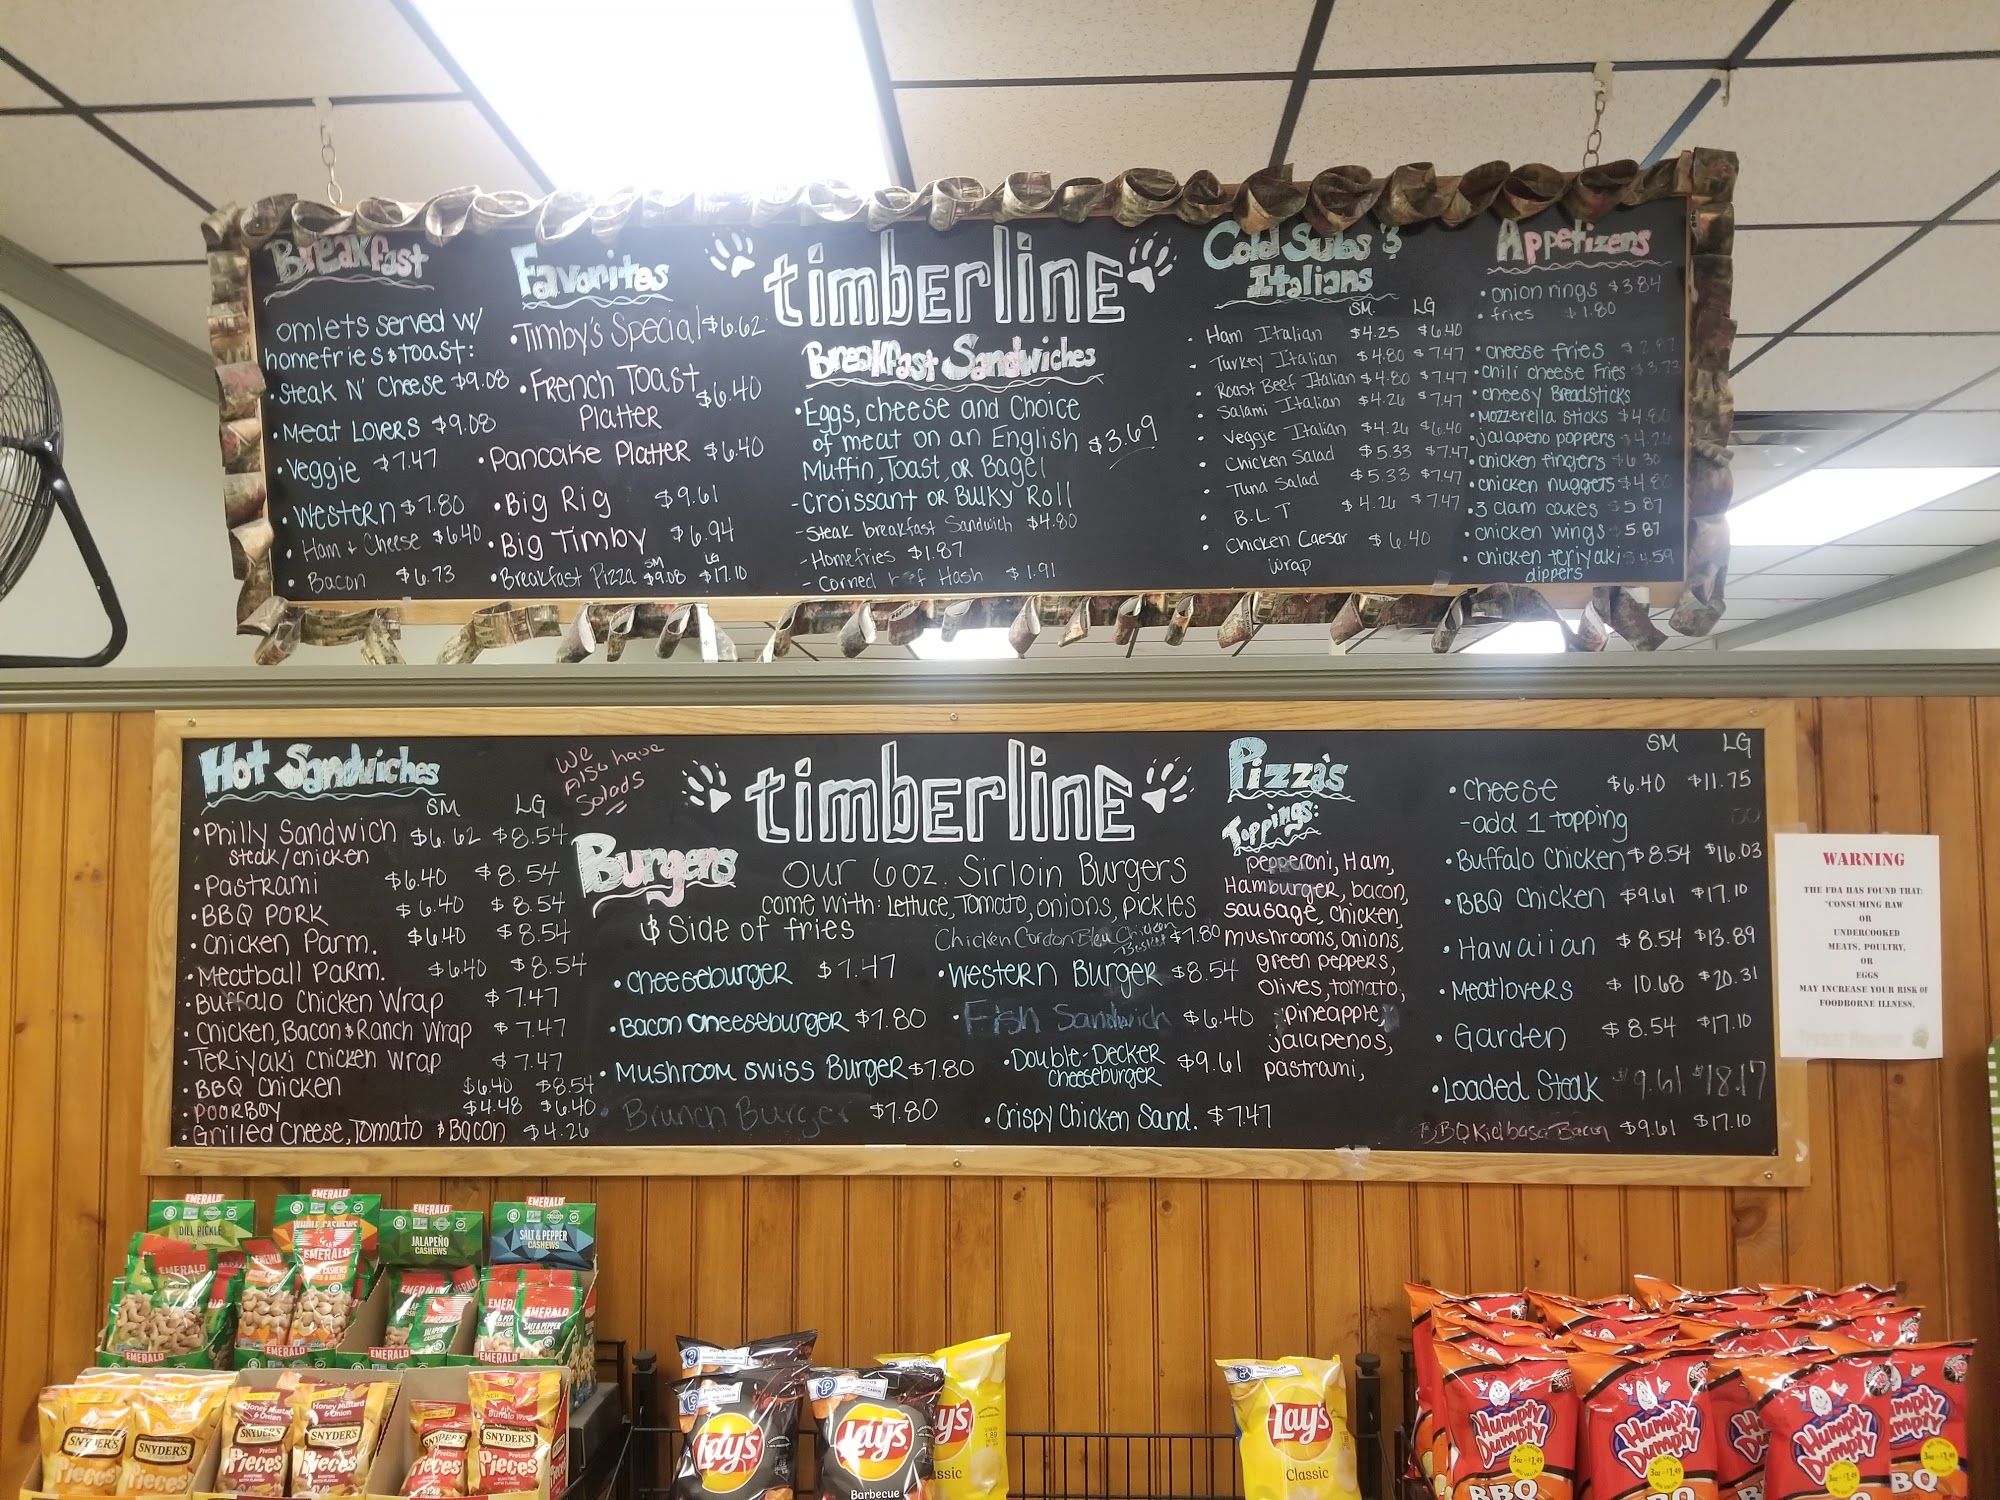 Breakfast
omlets served w/
homefries & toast:
• Steak N' Cheese $9.08
• Meat Lovers $9.08
• Veggie $7.47
• Western $7.80
• Ham + Cheese $6.40
• Bacon $6.73
Favorites
• Timby's Special $6.62
• French Toast
Platter $6.40
• Pancake Platter $6.40
• Big Rig $9.61
• Big Timby $6.94
SM LG
• Breakfast Pizza $9.08 $17.10
timberline
Breakfast Sandwiches
• Eggs, cheese and Choice
of meat on an English $3.69
Muffin, Toast, or Bagel
- Croissant or Bulky Roll
- Steak breakfast Sandwich $4.80
- Homefries $1.87
- Corned Hash $1.91
Cold Subs &
Italians
SM. LG
• Ham Italian $4.25 $6.40
• Turkey Italian $4.80 $7.47
• Roast Beef Italian $4.80 $7.47
• Salami Italian $4.26 $7.47
• Veggie Italian $4.26 $6.40
• Chicken Salad $5.33 $7.47
• Tuna Salad $5.33 $7.47
• B.L.T $4.26 $7.47
• Chicken Caesar $6.40
Wrap
Appetizers
• onion rings $3.84
• fries $1.80
• cheese fries
• chili cheese fries
• cheesy Breadsticks
• Mozzerella sticks $4.80
• jalapeno poppers
• chicken fingers
• chicken nuggets $4.80
• 3 clam cakes $5.87
• chicken wings $5.87
• chicken teriyaki $4.59
dippers
Hot Sandwiches
SM LG
• Philly Sandwich $6.62 $8.54
steak/chicken
• Pastrami $6.40 $8.54
• BBQ Pork $6.40 $8.54
• Chicken Parm. $6.40 $8.54
• Meatball Parm. $6.40 $8.54
• Buffalo Chicken Wrap $7.47
• Chicken, Bacon & Ranch Wrap $7.47
• Teriyaki Chicken Wrap $7.47
• BBQ Chicken $6.40 $8.54
• Poorboy $4.48 $6.40
• Grilled Cheese, Tomato & Bacon $4.26
We
Also have
Salads
timberline
Burgers
Our 6oz. Sirloin Burgers
come with: Lettuce, Tomato, onions, pickles
& Side of fries
• Cheeseburger $7.47
• Bacon Cheeseburger $7.80
• Mushroom Swiss Burger $7.80
• Brunch Burger $7.80
Chicken Cordon Bleu Chicken
Basket $7.80
• Western Burger $8.54
• Fish Sandwich $6.40
• Double-Decker $9.61
cheeseburger
• Crispy Chicken Sand. $7.47
Pizza's
Toppings:
pepperoni, Ham,
Hamburger, bacon,
sausage, chicken,
mushrooms, onions,
green peppers,
olives, tomato,
pineapple,
jalapenos,
pastrami,
SM LG
• Cheese $6.40 $11.75
- add 1 topping
• Buffalo Chicken $8.54 $16.03
• BBQ Chicken $9.61 $17.10
• Hawaiian $8.54 $13.89
• Meatlovers $10.68 $20.31
• Garden $8.54 $17.10
• Loaded Steak $9.61 $18.17
BBQ Kielbasa Bacon $9.61 $17.10
WARNING
THE FDA HAS FOUND THAT:
"CONSUMING RAW
OR
UNDERCOOKED
MEATS, POULTRY,
OR
EGGS
MAY INCREASE YOUR RISK OF
FOODBORNE ILLNESS.
EMERALD
DILL PICKLE
EMERALD
WHOLE CASHEWS
EMERALD
JALAPEÑO
CASHEWS
EMERALD
SALT & PEPPER
CASHEWS
EMERALD
EMERALD
EMERALD
SALT & PEPPER
CASHEWS
EMERALD
EMERALD
EMERALD
SNYDER'S
Pieces
SNYDER'S
Pieces
Honey Mustard
& Onion
SNYDER'S
Pieces
Honey Mustard
& Onion
SNYDER'S
Pieces
Buffalo Wing
SNYDER'S
Pieces
Lay's
Lay's
Barbecue
Lay's
Classic
Humpty
Dumpty
BBQ
Humpty
Dumpty
3oz $1.49
BBQ
Humpty
Dumpty
3oz $1.49
BBQ